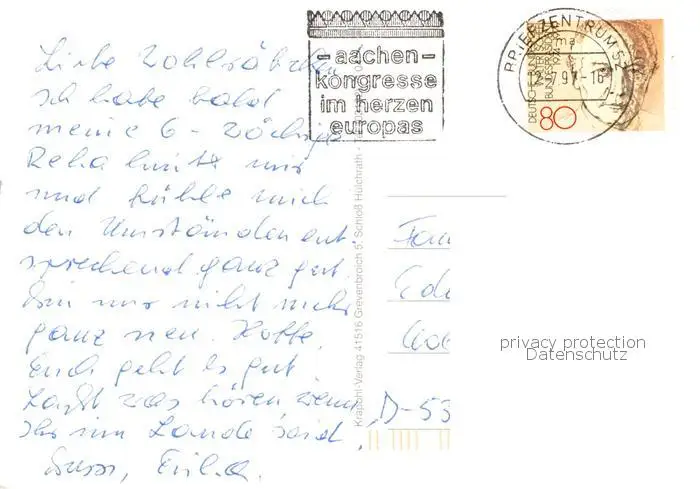 Liebe
ich habe bald
meine 6-wöchige
Reha hinter mir
und fühle mich
den Umständen ent-
sprechend ganz gut.
Bin nur nicht mehr
ganz neu. Hoffe,
Euch geht es gut.
Laßt was hören wenn
Ihr im Lande seid.
- aachen -
kongresse
im herzen
europas
BRIEFZENTRUM 5
12.-7.97-16
DEUTSCHE BUNDESPOST
80
Krapohl-Verlag 41516 Grevenbroich 5, Schloß Hülchrath
Fam
D-53
privacy protection
Datenschutz